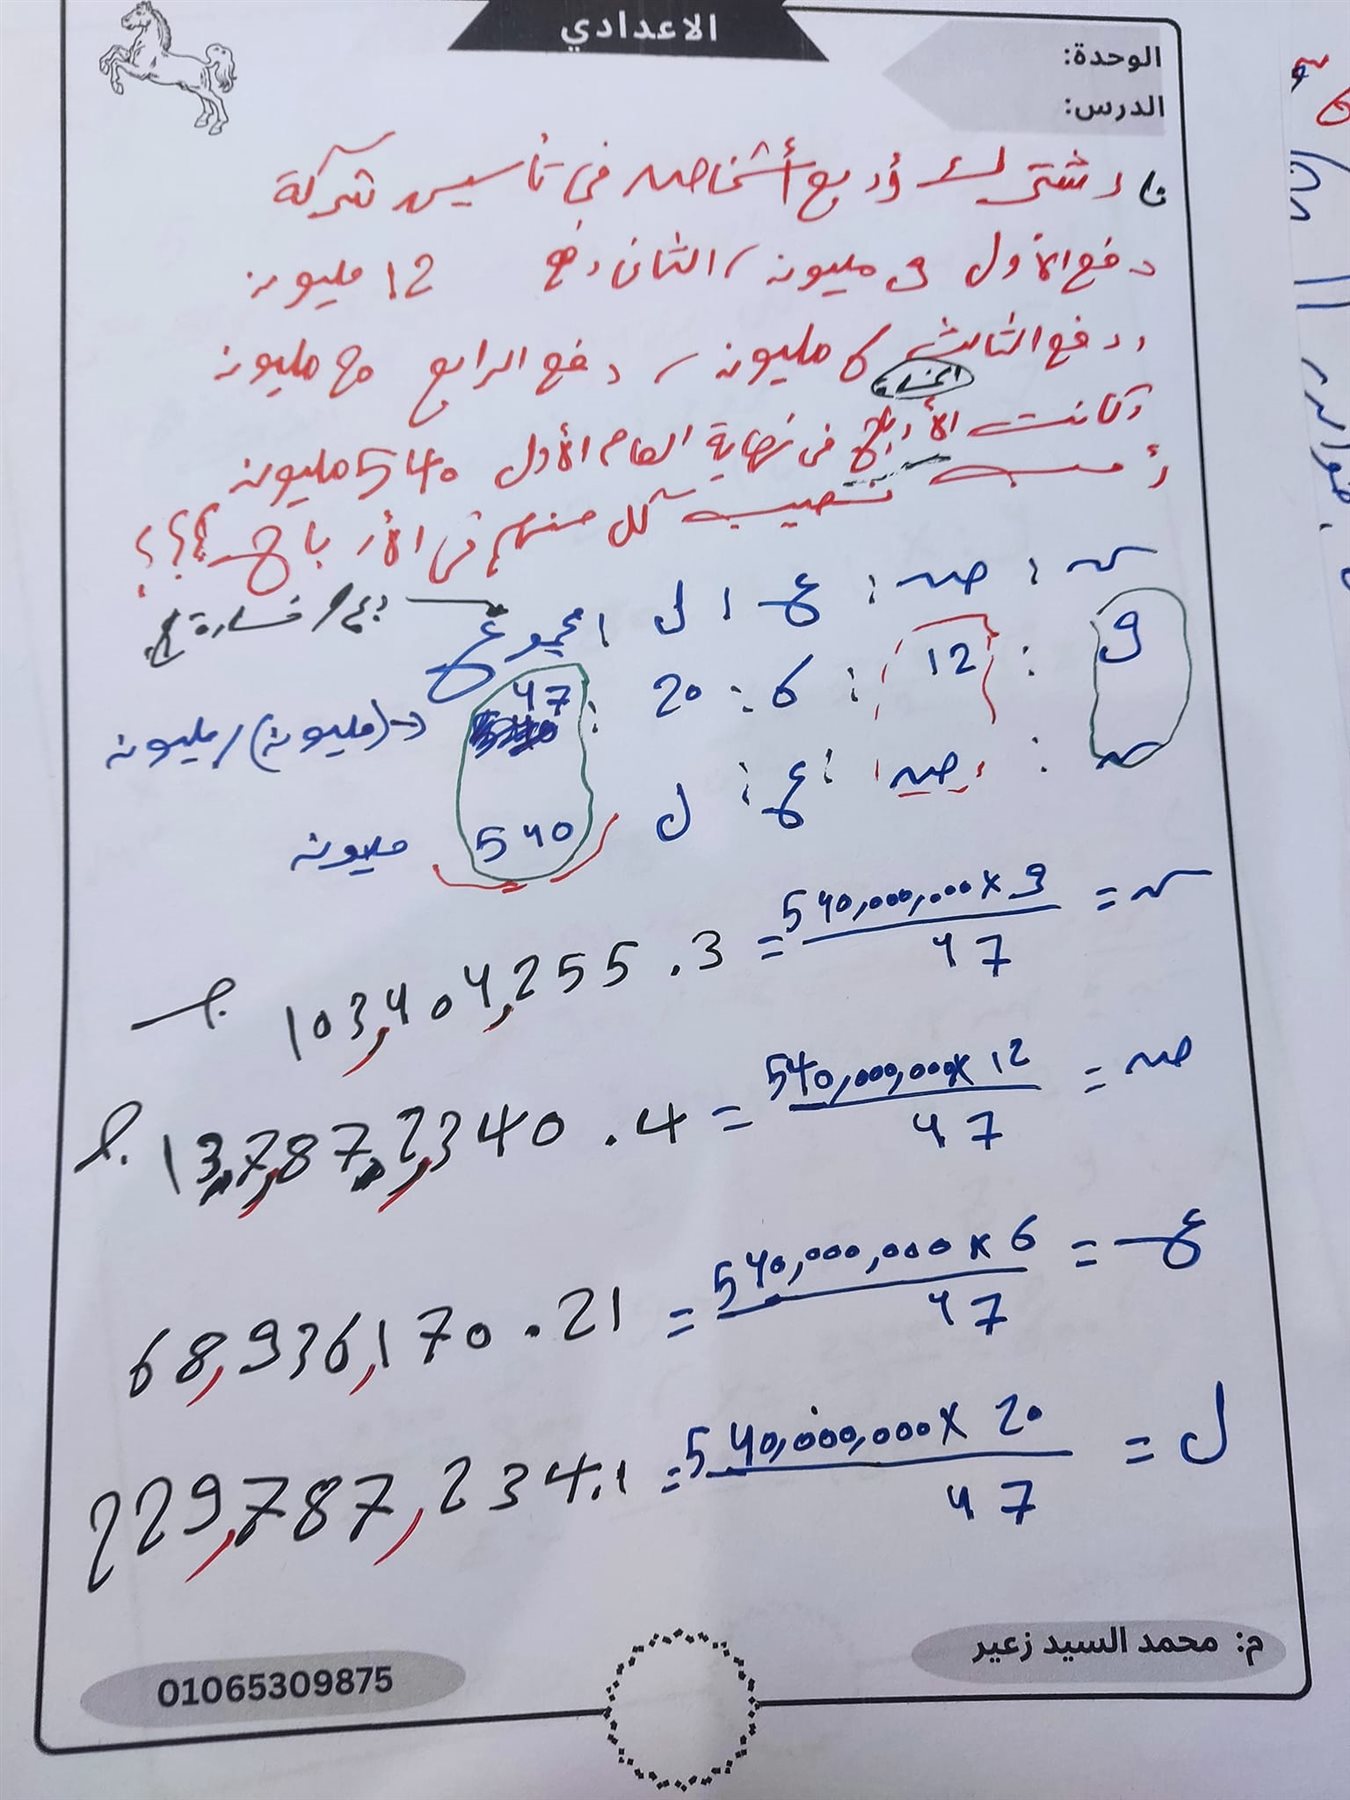 الاعدادي
الوحدة:
الدرس:
اشترك أربع أشخاص في تأسيس شركة
دفع الأول 9 مليون / الثاني دفع 12 مليون
ودفع الثالث 6 مليون / دفع الرابع 20 مليون
الخسارة
وكانت الأرباح في نهاية العام الأول 540 مليون
أحسب نصيب كل منهم في الأرباح ؟؟؟
س : ص : ع : ل : المجموع
9 : 12 : 6 : 20 : 47 (مليون) / مليون
س : ص : ع : ل 540 مليون
س = 540,000,000 × 9 / 47 = 103,404,255.3
ص = 540,000,000 × 12 / 47 = 13,7,87,2,340.4
ع = 540,000,000 × 6 / 47 = 68,936,170.21
ل = 540,000,000 × 20 / 47 = 229,787,234.1
م: محمد السيد زعير
01065309875